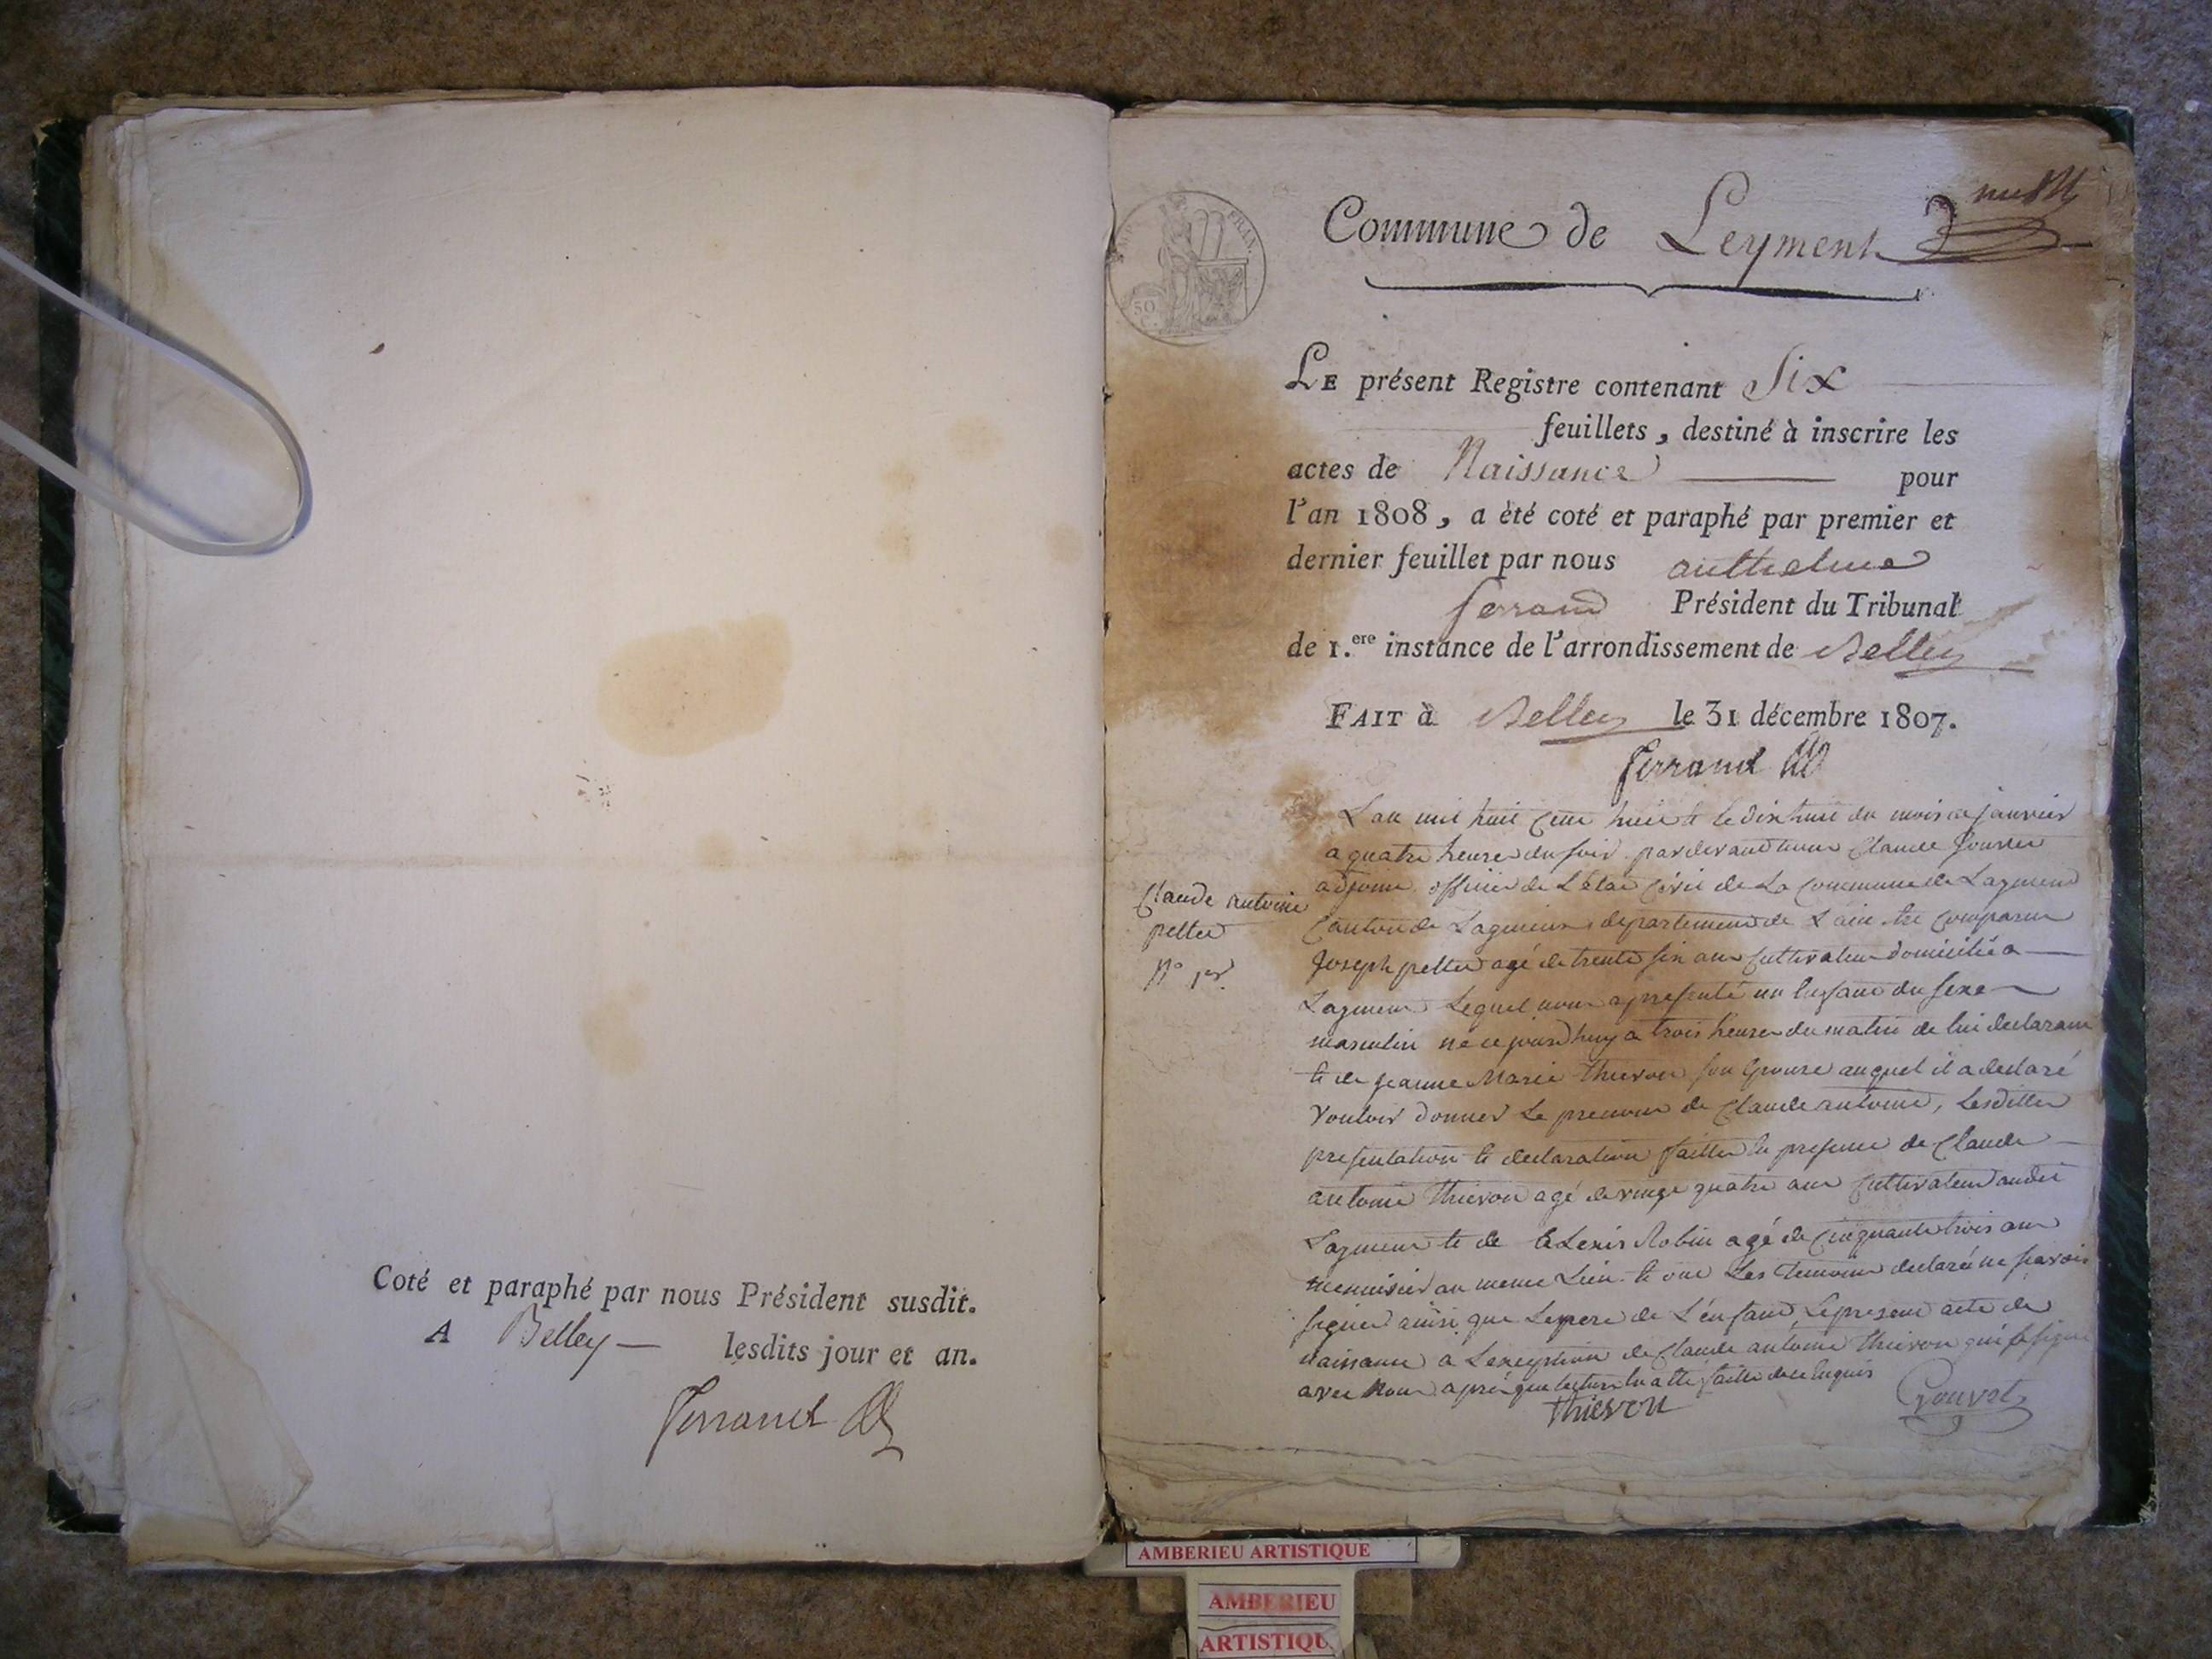 Coté et paraphé par nous Président susdit.
A Belley — lesdits jour et an.
Ferrand
Commune de Leyment
FRAN.
50
C.
LE présent Registre contenant Six
feuillets, destiné à inscrire les
actes de Naissance — pour
l'an 1808, a été coté et paraphé par premier et
dernier feuillet par nous anthelme
ferrand Président du Tribunal
de 1.ere instance de l'arrondissement de Belley
FAIT à Belley le 31 décembre 1807.
Ferrand
Claude antoine
peltier
N° 1er
L'an mil huit cent huit & le dix huit du mois de janvier
a quatre heures du soir pardevant nous Claude
adjoint officier de L'état civil de La Commune de Laymend
Canton de Lagnieux departement de L'ain est comparu
Joseph agé de trente six ans cultivateur domicilié a —
Laymend Lequel nous a presenté un Enfant du sexe —
masculin né ce jourd'huy a trois heures du matin de lui declarant
& de jeanne Marie Thievon son Epouse auquel il a declaré
vouloir donner Le prenom de Claude antoine, Lesdittes
presentation & declaration faittes En presence de Claude —
antoine Thievon agé de vingt quatre ans cultivateur audit
Laymend & de aLexis Robin agé de cinquante trois ans
menuisier au meme Lieu & ont Les temoins declaré ne savoir
signer ainsi que Le pere de L'enfant Le present acte de
naissance a L'exception de Claude antoine Thievon qui a signé
avec Nous après que lecture En a été faitte
Thievon
AMBERIEU ARTISTIQUE
AMBERIEU
ARTISTIQU